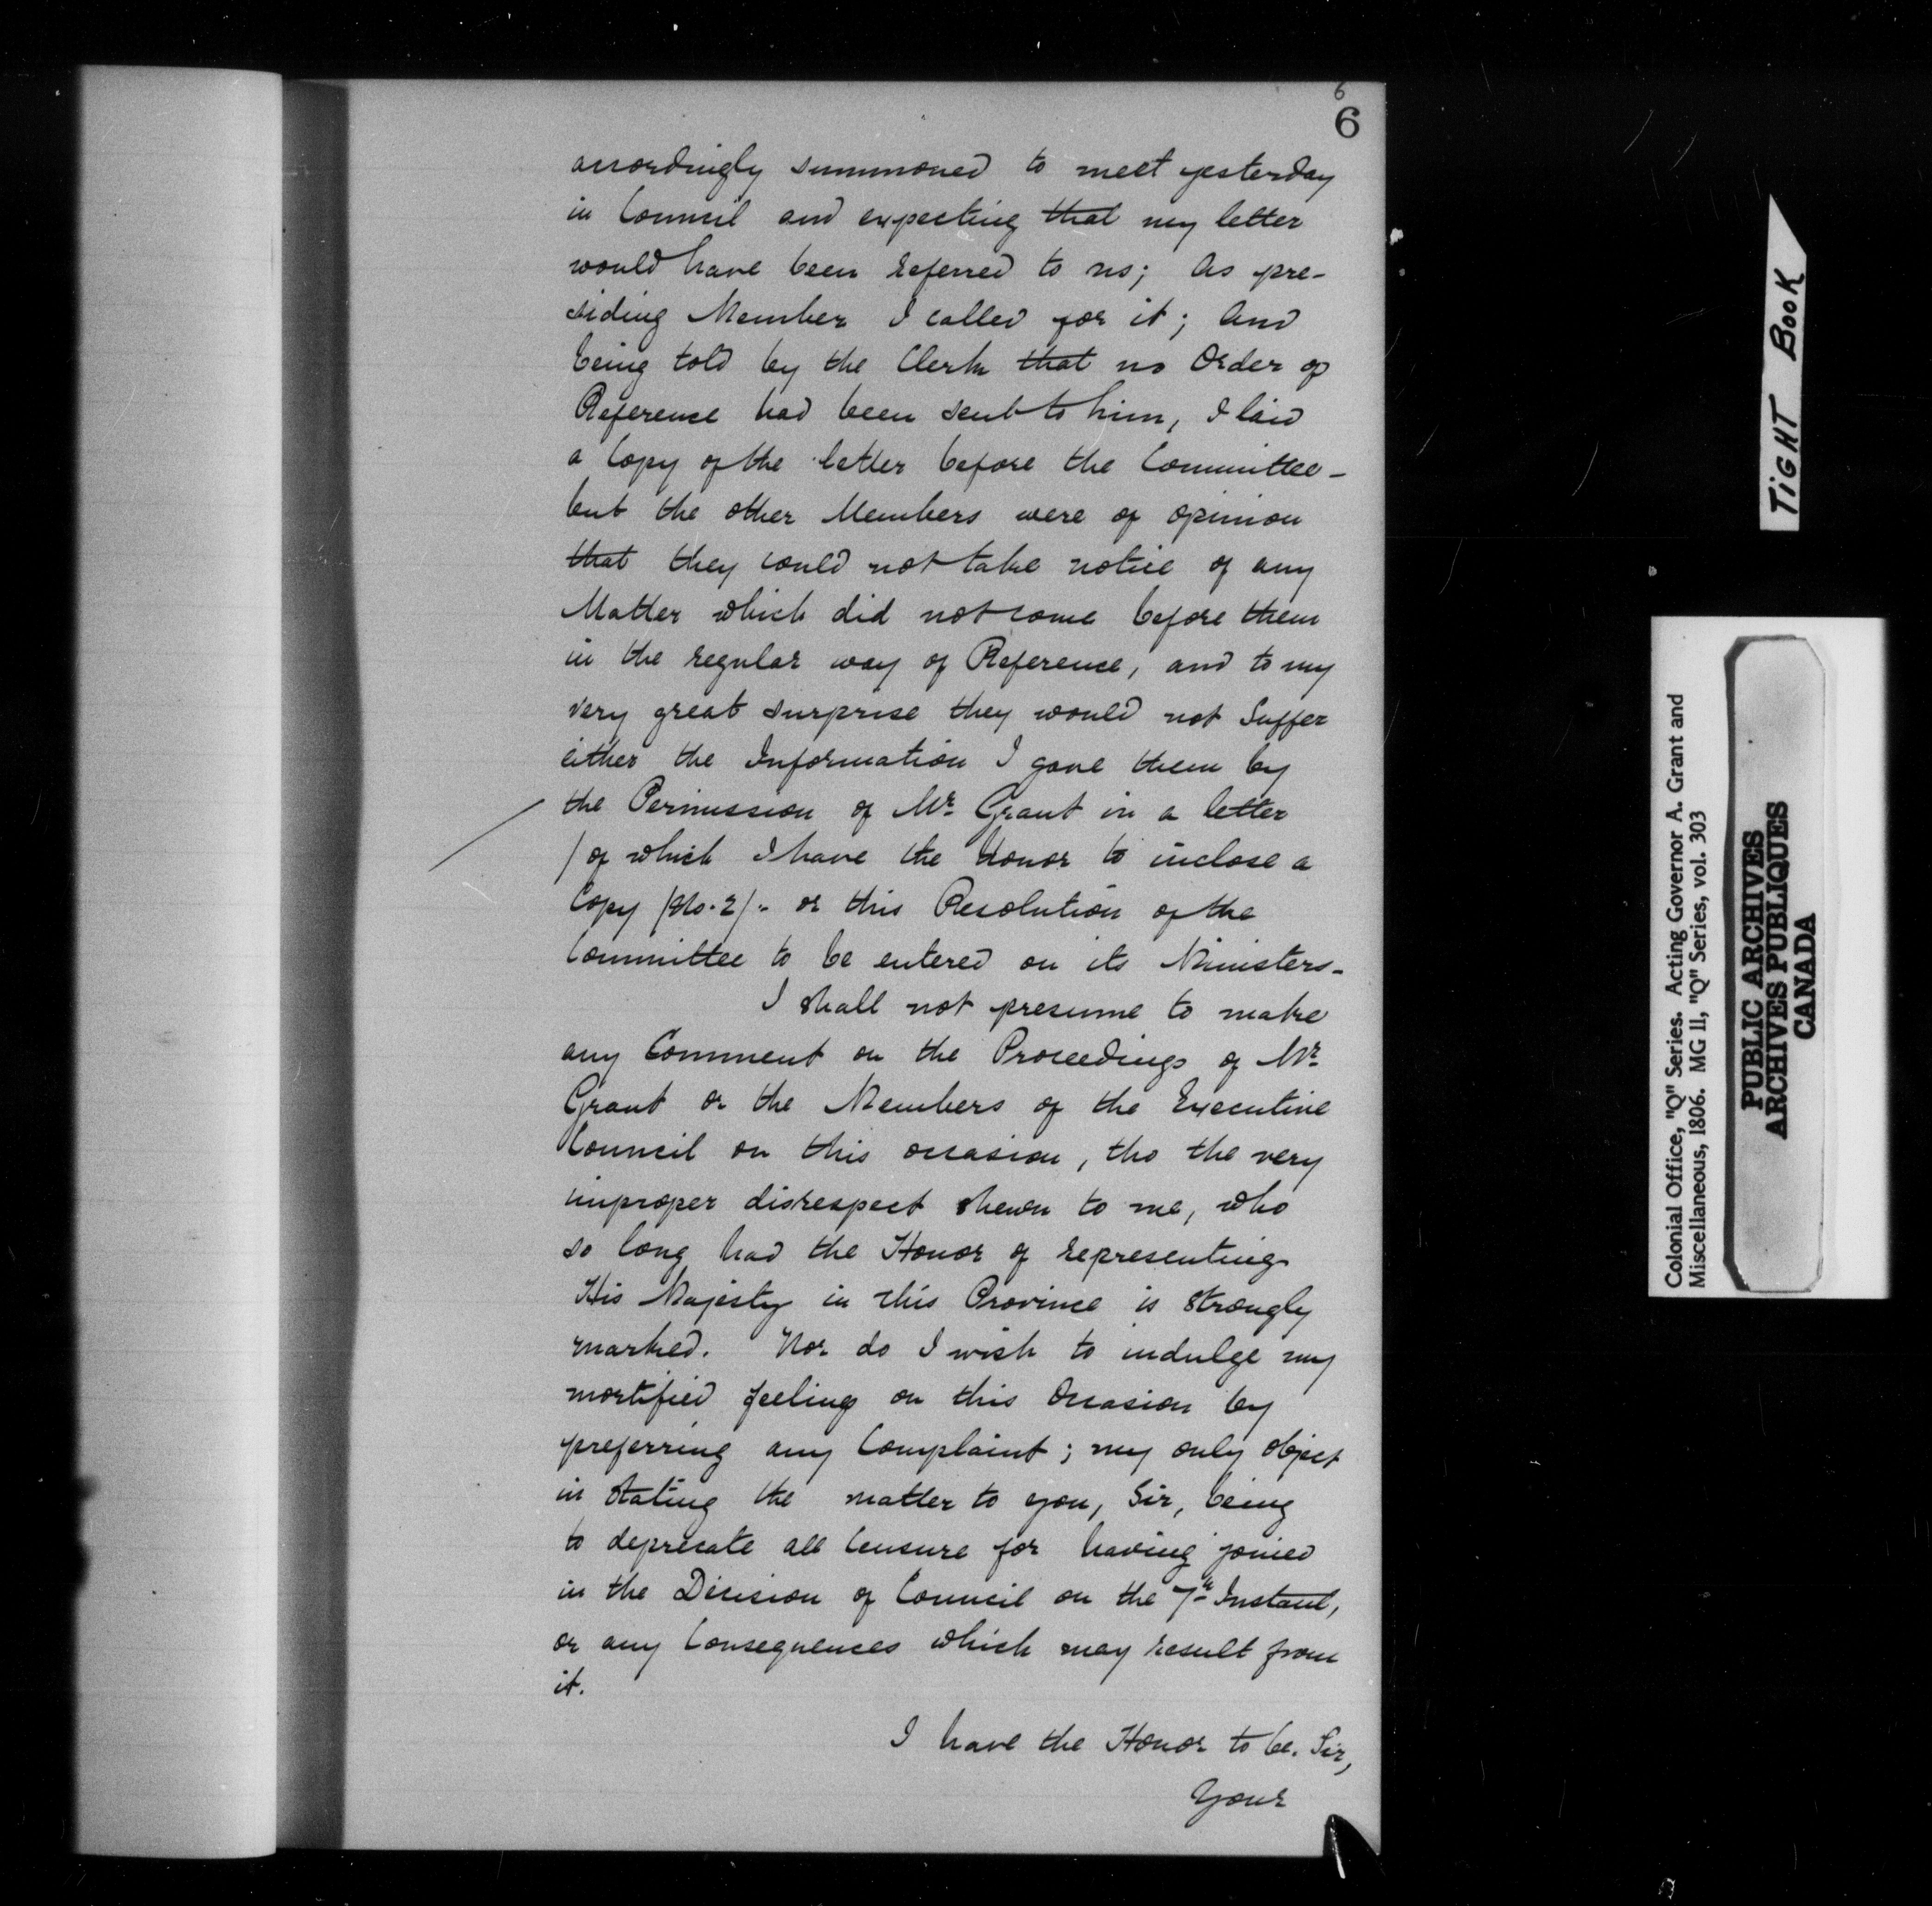 6
6
accordingly summoned to meet yesterday
in Council and expecting that my letter
would have been referred to us; As pre-
siding Member I called for it; And
being told by the Clerk that no Order of
Reference had been sent to him, I laid
a Copy of the letter before the Committee -
but the other Members were of opinion
that they could not take notice of any
Matter which did not come before them
in the regular way of Reference, and to my
very great surprise they would not Suffer
either the Information I gave them by
the Permission of Mr. Grant in a letter
/ of which I have the honor to inclose a
Copy /No. 2/ - or this Resolution of the
Committee to be entered on its Ministers -
I shall not presume to make
any Comment on the Proceedings of Mr.
Grant or the Members of the Executive
Council on this occasion, tho the very
improper disrespect shewn to me, who
so long had the Honor of representing
His Majesty in this Province is strongly
marked. Nor do I wish to indulge my
mortified feelings on this Occasion by
preferring any Complaint; my only object
in stating the matter to you, Sir, being
to deprecate all Censure for having joined
in the Decision of Council on the 7th Instant,
or any Consequences which may result from
it.
I have the Honor to be. Sir,
Your
TIGHT BOOK
Colonial Office, "Q" Series. Acting Governor A. Grant and
Miscellaneous, 1806. MG 11, "Q" Series, vol. 303
PUBLIC ARCHIVES
ARCHIVES PUBLIQUES
CANADA